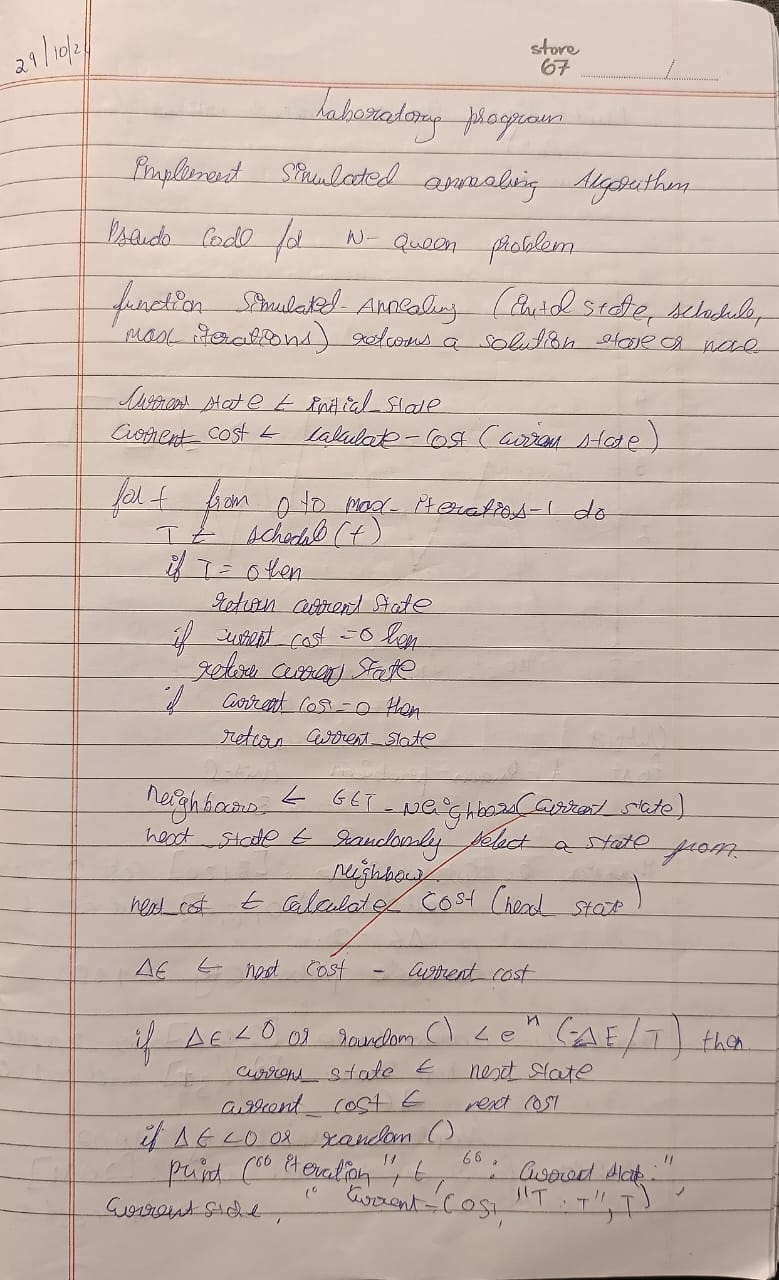 29/10/24
store
67
Laboratory program
Implement Simulated annealing Algorithm
Pseudo Code for N- Queen problem
function Simulated-Annealing (Initial state, schedule,
max iterations) returns a solution state or none
Current state ← initial_state
current cost ← calculate-cost (curren state)
for t from 0 to max- iterations-1 do
T ← schedule(t)
if T = 0 then
return current state
if current cost =0 then
return current state
if current cos =0 then
return current_state
neighbours ← GET - neighbors(current state)
next state ← randomly select a state from
neighbour
next_cost ← calculate cost (next state)
ΔE ← next cost - current cost
if ΔE < 0 or random () < e^n (-ΔE/T) then
curren_state ← next state
current_cost ← next cost
if ΔE < 0 or random ()
print ("iteration", t, ": current state:",
current state, " current-cost, "T : T", T)